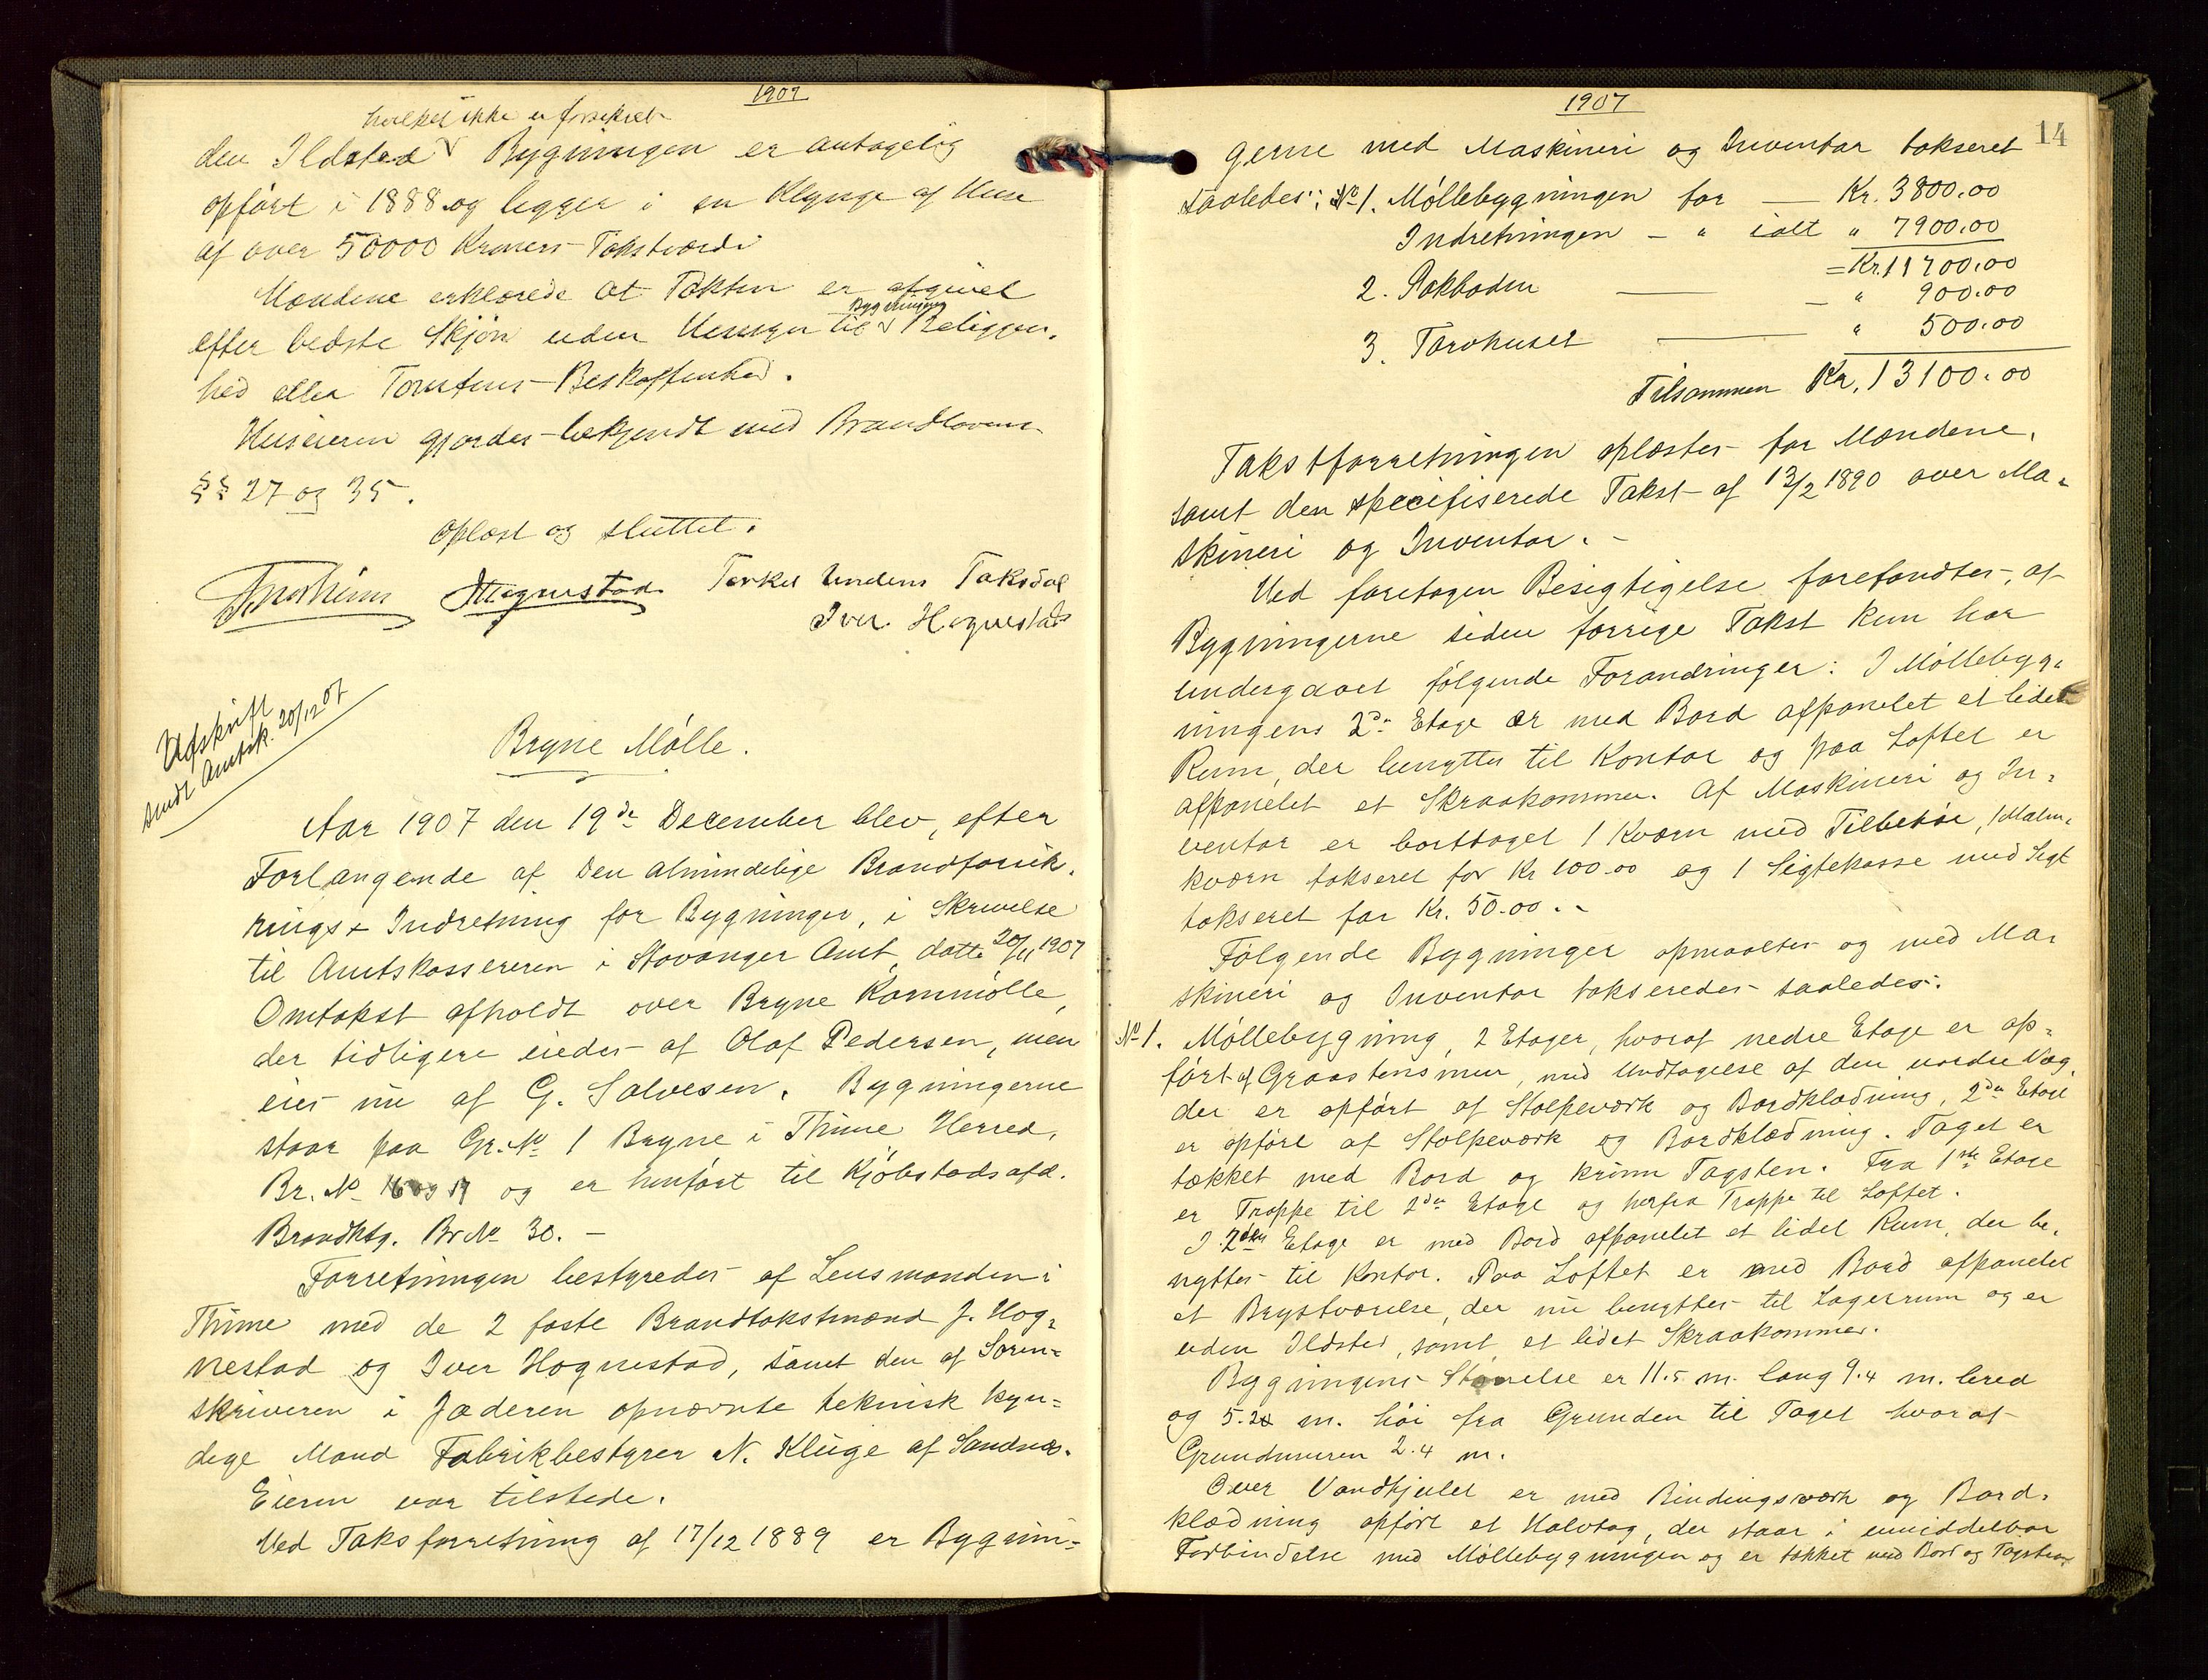 1907
hvilket ikke er forsikret
den Ildsted V Bygningen er antagelig
opført i 1888 og ligger i en Klynge af Huse
af over 50000 Kroners Takstværdi
Mændene erklærede at Taksten er afgivet
efter bedste Skjøn uden Hensyn til V Beliggen-
Bygningens
hed eller Tomtens Beskaffenhed.
Huseieren gjordes bekjendt med Brandlovens
§§ 27 og 35.
Oplæst og sluttet.
JHognestad Torkel Undem Taksdal
Iver Hognestad
Udskrift
sendt Amtsk. 20/12 07
Bryne Mølle.
Aar 1907 den 19de December blev, efter
Forlangende af Den almindelige Brandforsik-
rings- Indretning for Bygninger, i Skrivelse
til Amtskassereren i Stavanger Amt, datt. 20/11 1907
Omtakst afholdt over Bryne Kornmølle,
der tidligere eiedes af Olaf Pedersen, men
eies nu af G. Salvesen. Bygningerne
staar paa Gr. No 1 Bryne i Thime Herred,
Br. No 16 og 17 og er henført til Kjøbstadsafd.
Brandktg. Br No 30. -
Forretningen bestyredes af Lensmanden i
Thime med de 2 faste Brandtakstmænd J. Hog-
nestad og Iver Hognestad, samt den af Soren-
skriveren i Jæderen opnævnte teknisk kyn-
dige Mand Fabrikbestyrer N. Kluge af Sandnæs.
Eieren var tilstede.
Ved Taksforretning af 17/12 1889 er Bygnin-
1907
14
gerne med Maskineri og Inventar takseret
saaledes: No 1. Møllebygningen for — Kr. 3800.00
Indretningen - " ialt " 7900.00
= Kr. 11700.00
2. Sakboden — - " 900.00
3. Tørvhuset — " 500.00
Tilsammen Kr. 13100.00
Takstforretningen oplæstes for Mændene,
samt den specifiserede Takst af 13/2 1890 over Ma-
skineri og Inventar. -
Ved foretagen Besigtigelse forefandtes, at
Bygningerne siden forrige Takst kun har
undergaaet følgende Forandringer: I Møllebyg-
ningens 2den Etage er med Bord afpanelet et lidet
Rum, der benyttes til Kontor og paa Loftet er
afpanelet et Skraakammer. Af Maskineri og In-
ventar er borttaget 1 Kværn med Tilbehør, 1 Malm-
kværn takseret for Kr 100.00 og 1 Sigtekasse med Sigt
takseret for Kr. 50.00. -
Følgende Bygninger opmaaltes og med Ma-
skineri og Inventar takseredes saaledes:
No 1. Møllebygning, 2 Etager, hvoraf nedre Etage er op-
ført af Graastensmur, med Undtagelse af den nordre Væg,
der er opført af Stolpeværk og Bordklædning, 2den Etage
er opført af Stolpeværk og Bordklædning. Taget er
tækket med Bord og krum Tagsten. Fra 1ste Etage
er Trappe til 2den Etage og herfra Trappe til Loftet.
I 2den Etage er med Bord afpanelet et lidet Rum, der be-
nyttes til Kontor. Paa Loftet er med Bord afpanelet
et Brystværelse, der nu benyttes til Lagerrum og er
uden Ildsted, samt et lidet Skraakammer.
Bygningens Størrelse er 11.5 m. lang 9.4 m. bred
og 5.2 m. høi fra Grunden til Taget hvoraf
Grundmuren 2.4 m.
Over Vandhjulet er med Bindingsværk og Bord-
klædning opført et Halvtag, der staar i umiddelbar
Forbindelse med Møllebygningen og er tækket med Bord og Tagsten